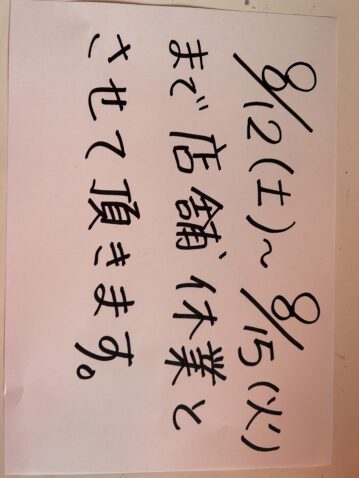 8/12(土)~8/15(火)
まで店舗休業と
させて頂きます。